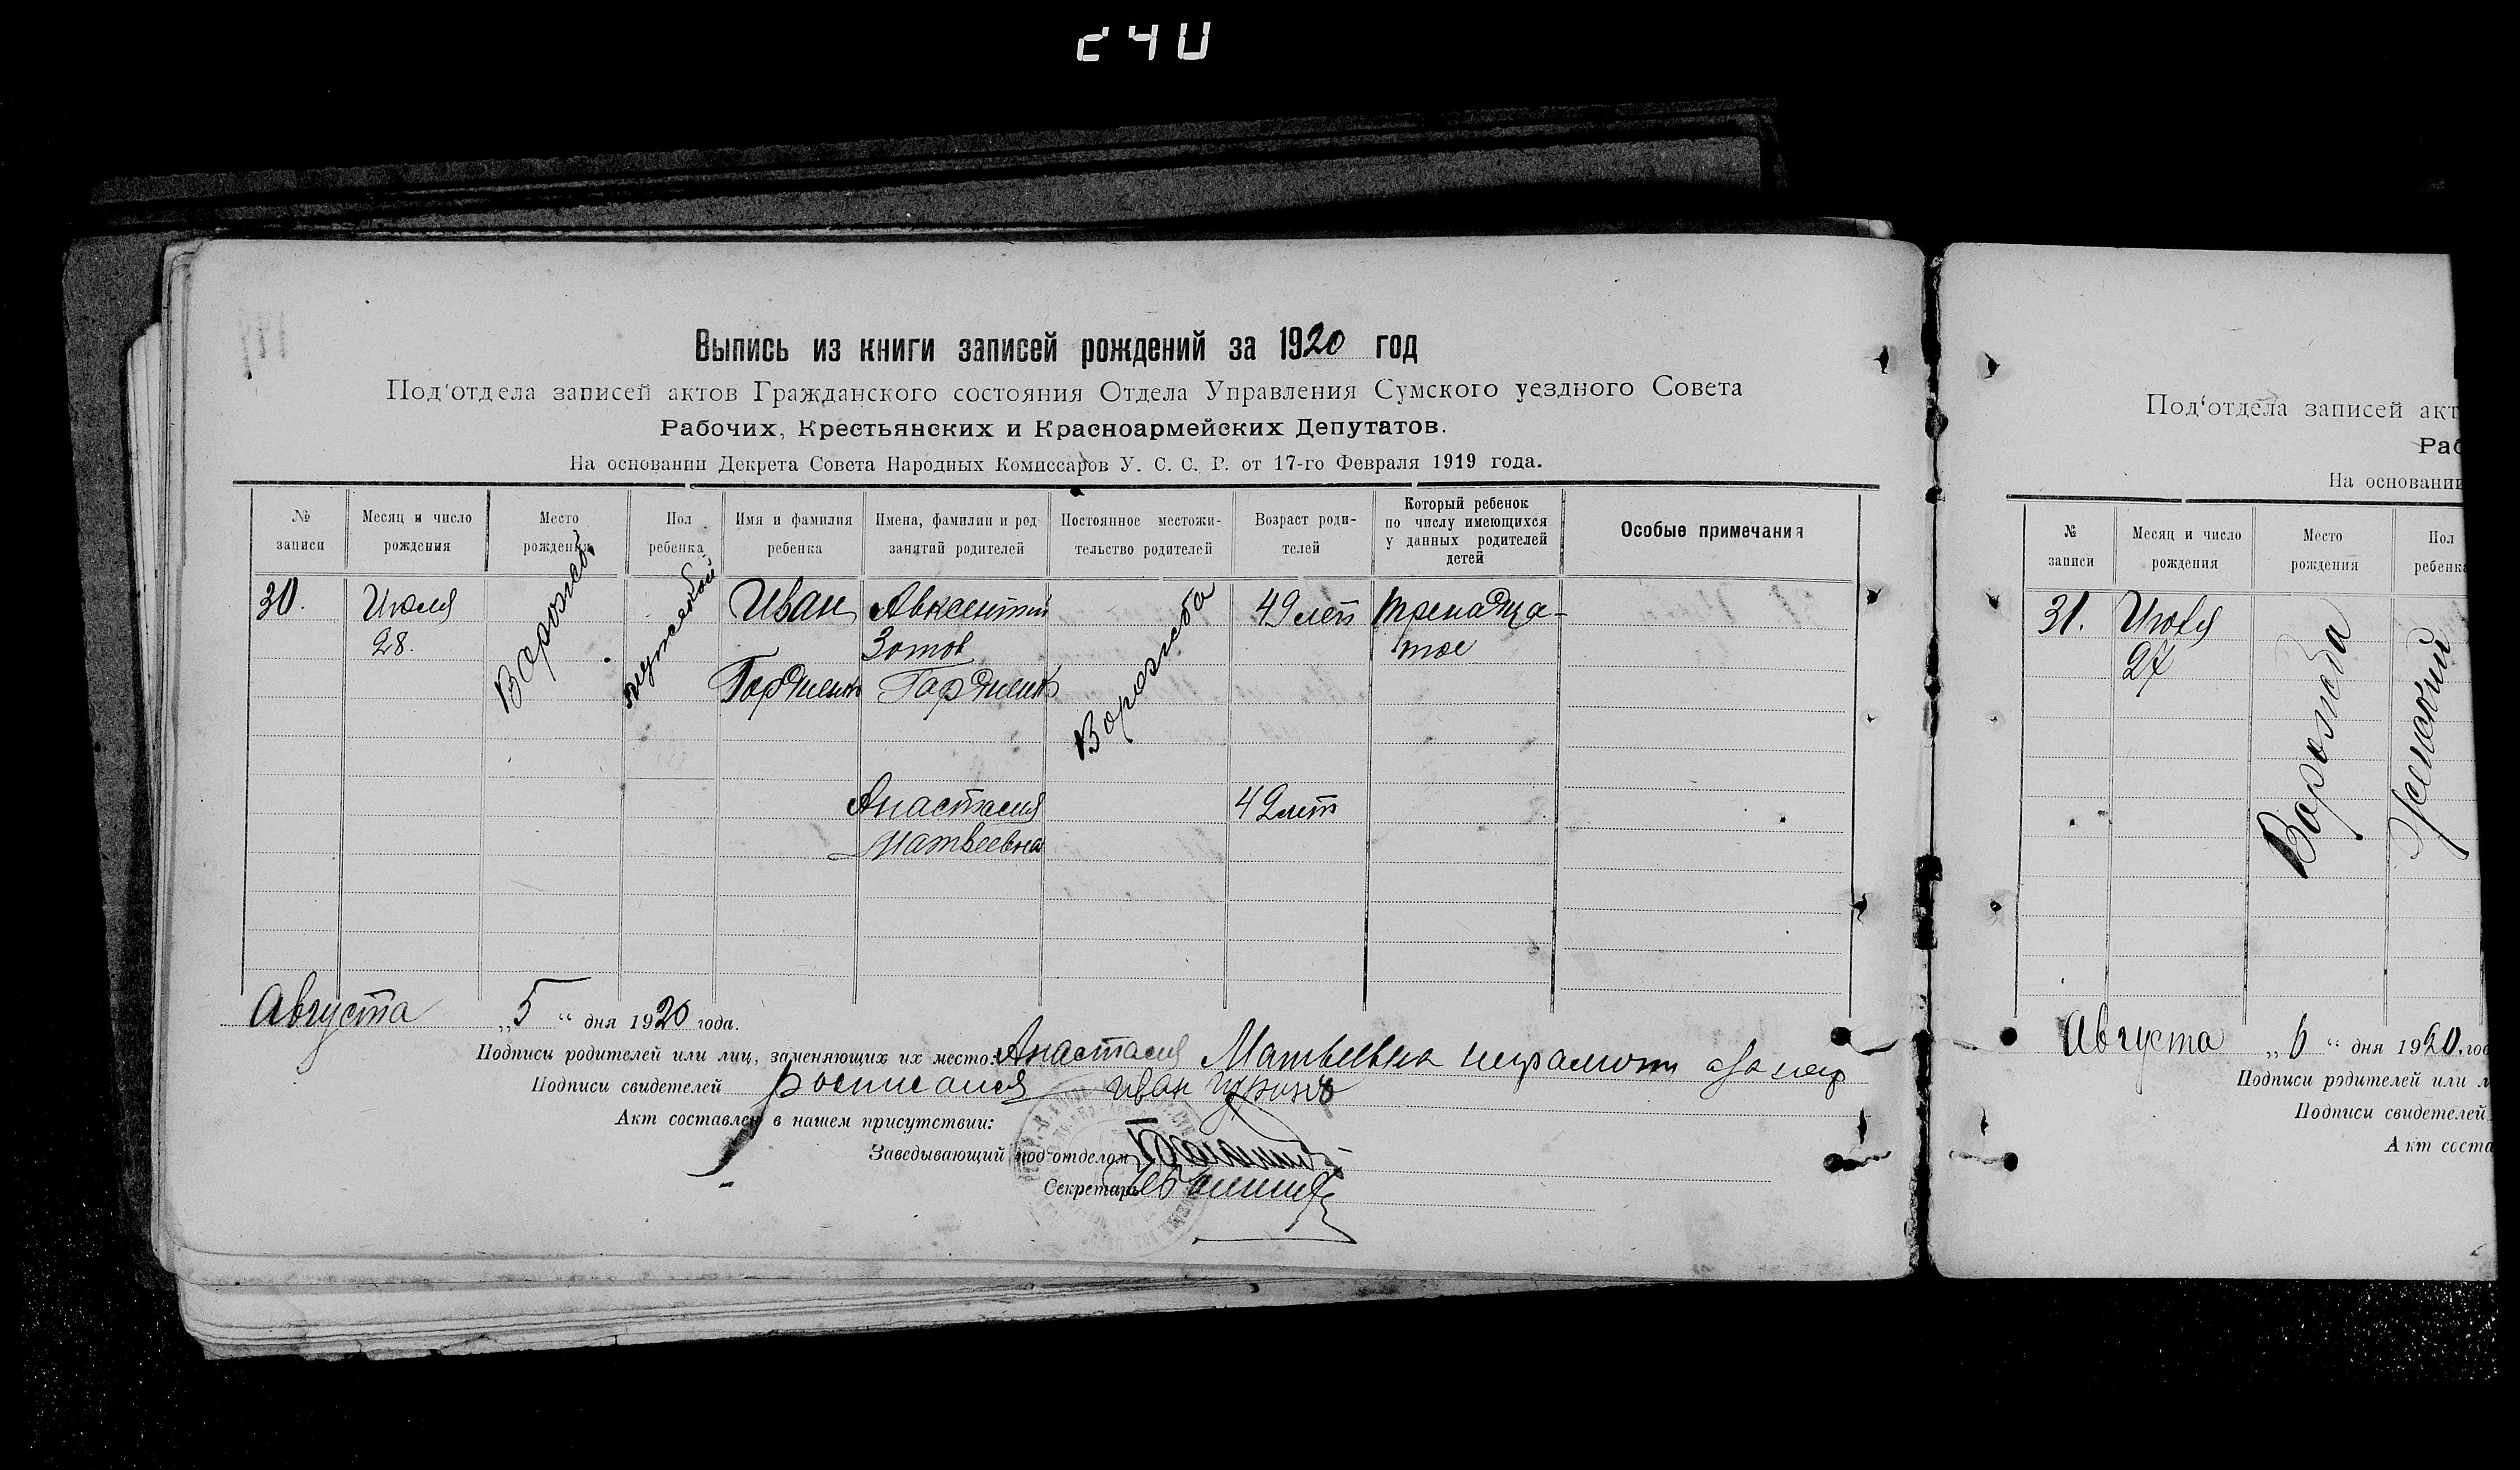 240
Выпись из книги записей рождений за 1920 год
Под'отдела записей актов Гражданского состояния Отдела Управления Сумского уездного Совета
Рабочих, Крестьянских и Красноармейских Депутатов.
На основании Декрета Совета Народных Комиссаров У. С. С. Р. от 17-го Февраля 1919 года.
№ записи
Месяц и число рождения
Место рождения
Пол ребенка
Имя и фамилия ребенка
Имена, фамилии и род занятий родителей
Постоянное местожительство родителей
Возраст родителей
Который ребенок по числу имеющихся у данных родителей детей
Особые примечания
30.
Июля
28.
Ворожба
мужеской
Иван
Гордиенко
Авксентий
Зотов
Гордиенко
Ворожба
49 лет
тренадца-
тое
Анастасия
Матвеевна
42 лет
Августа „5“ дня 1920 года.
Подписи родителей или лиц, заменяющих их место: Анастасия Матвеевна
Подписи свидетелей Иван
Акт составлен в нашем присутствии:
Заведывающий под'отделом
Секретарь
Под'отдела записей акт
Раб
На основании
№ записи
Месяц и число рождения
Место рождения
Пол ребенка
31.
Июля
27
Ворожба
Женский
Августа „6“ дня 1920 год
Подписи родителей или л
Подписи свидетелей
Акт соста